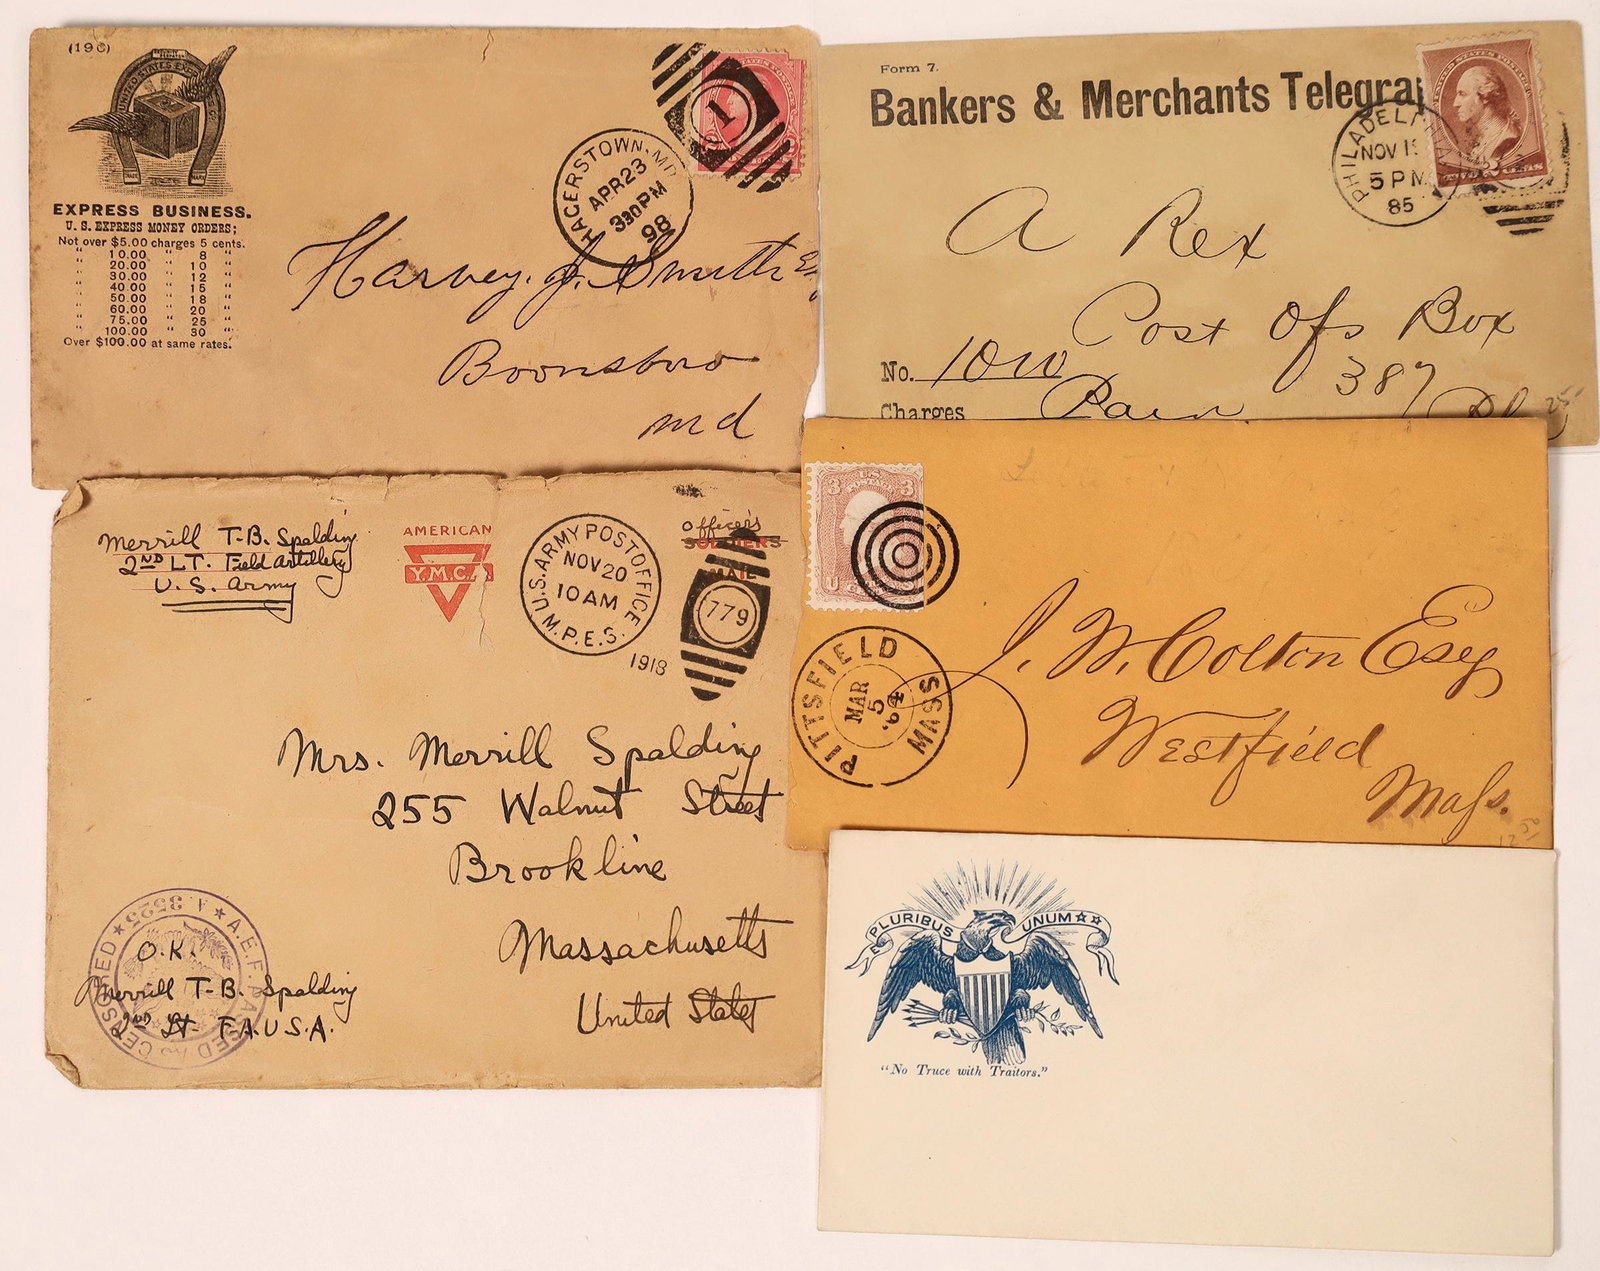 (196)
UNITED STATES EX
EXPRESS BUSINESS.
U. S. EXPRESS MONEY ORDERS;
Not over $5.00 charges 5 cents.
" 10.00 " 8 "
" 20.00 " 10 "
" 30.00 " 12 "
" 40.00 " 15 "
" 50.00 " 18 "
" 60.00 " 20 "
" 75.00 " 25 "
" 100.00 " 30 "
Over $100.00 at same rates.
HAGERSTOWN. MD
APR 23
330PM
98
1
Harvey. J. Smith Esq
Boonsboro
Md
Form 7.
Bankers & Merchants Telegra
PHILADEL
NOV 1
5 PM
85
2 CENTS
A Rex
Post Ofs Box
387
No. 10
Charges
25-
Merrill T-B. Spalding
2ND LT. Field Artillery
U. S. Army
AMERICAN
Y.M.C.A.
U.S. ARMY POST OFFICE
NOV 20
10 AM
M.P.E.S.
1918
officer's
SOLDIERS
MAIL
779
Mrs. Merrill Spalding
255 Walnut Street
Brookline
Massachusetts
United States
A.E.F. PASSED AS CENSORED
A.3525
O.K.
Merrill T-B. Spalding
2nd Lt F.A.U.S.A.
3 U.S. 3
POSTAGE
U
PITTSFIELD
MASS
MAR
5
'64
J. W. Colton Esq
Westfield
Mass.
E PLURIBUS UNUM
"No Truce with Traitors."